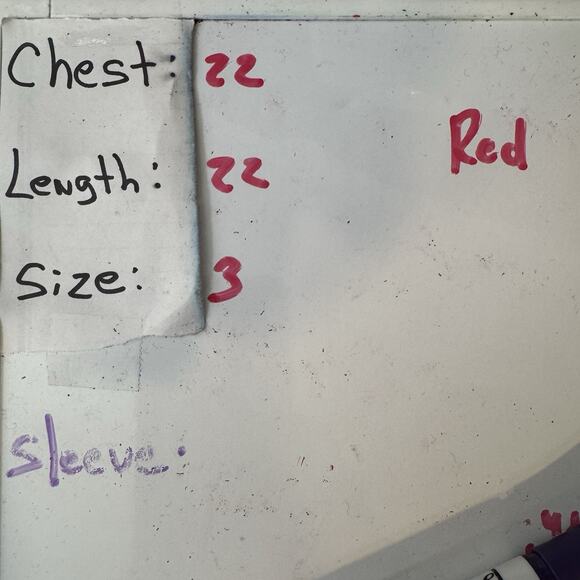 Chest: 22
Red
Length: 22
Size: 3
Sleeve: